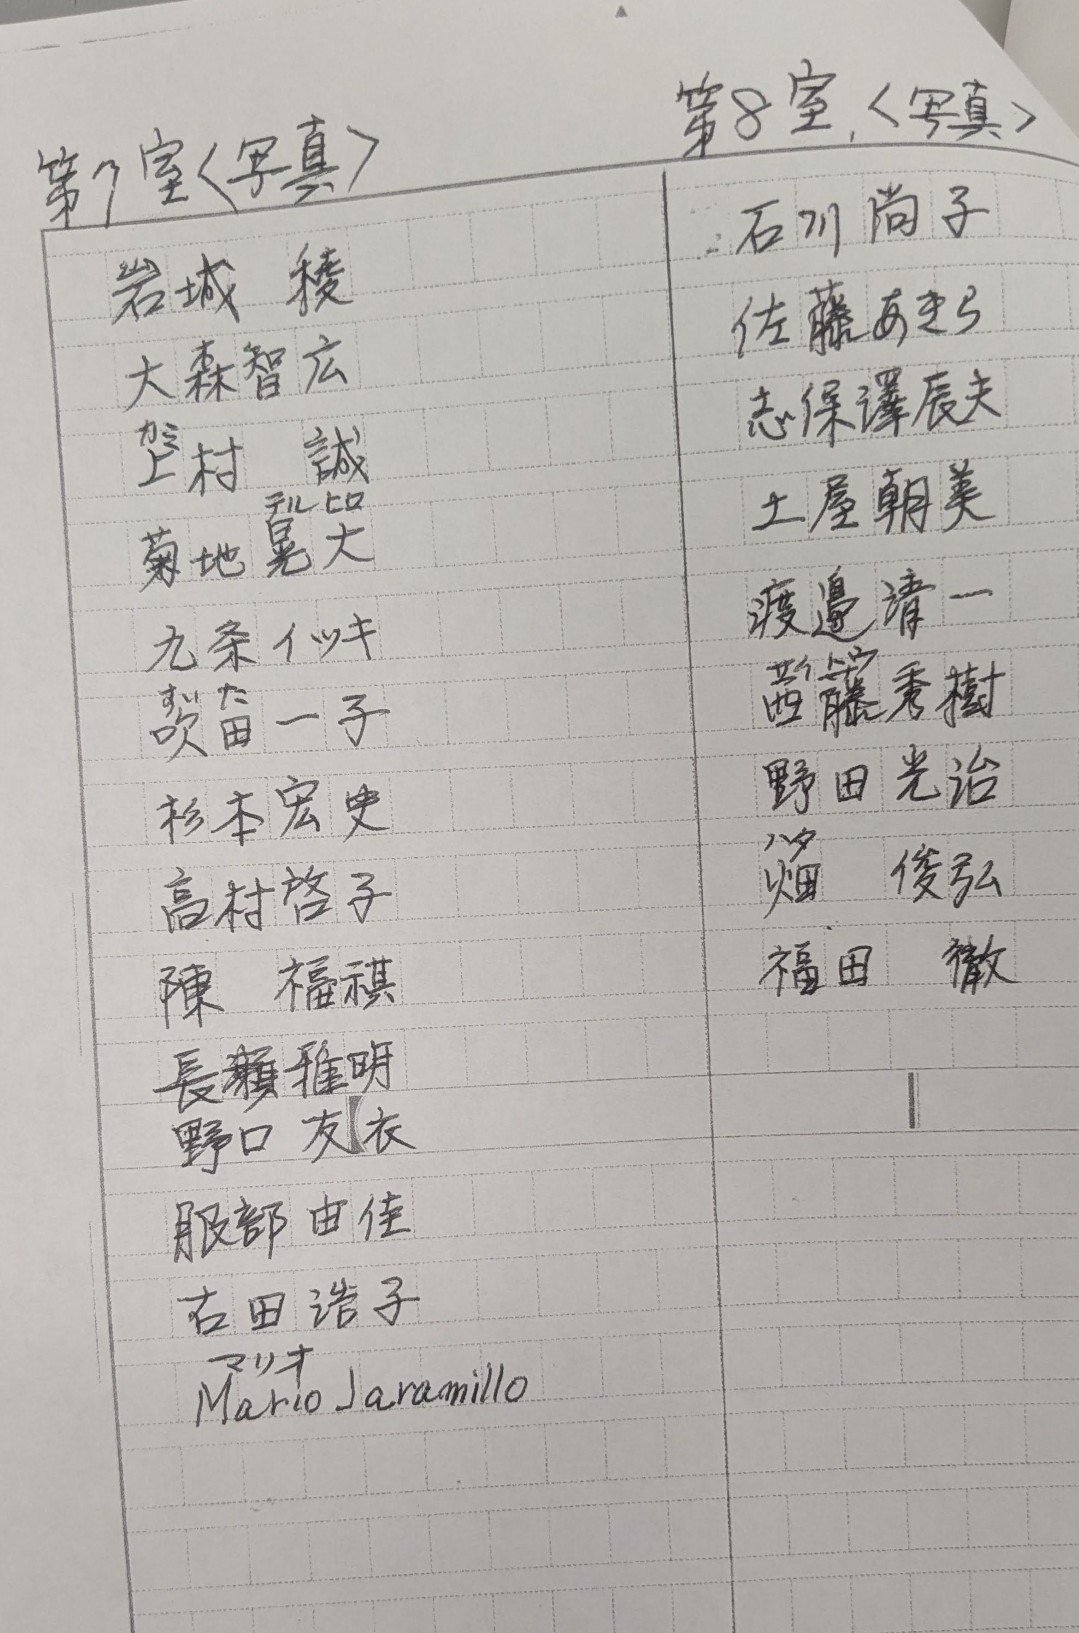 第7室〈写真〉
岩城　稜
大森智広
カミ
上村　誠
テルヒロ
菊地晃大
九条イツキ
すいた
吹畄一子
杉本宏史
高村啓子
陳　福祺
長瀬雅明
野口友衣
服部由佳
古田浩子
マリオ
Mario Jaramillo
第8室〈写真〉
石川尚子
佐藤あきら
志保澤辰夫
土屋朝美
渡邉清一
サイトウ
西藤秀樹
野田光治
ハタ
畑　俊弘
福田　徹